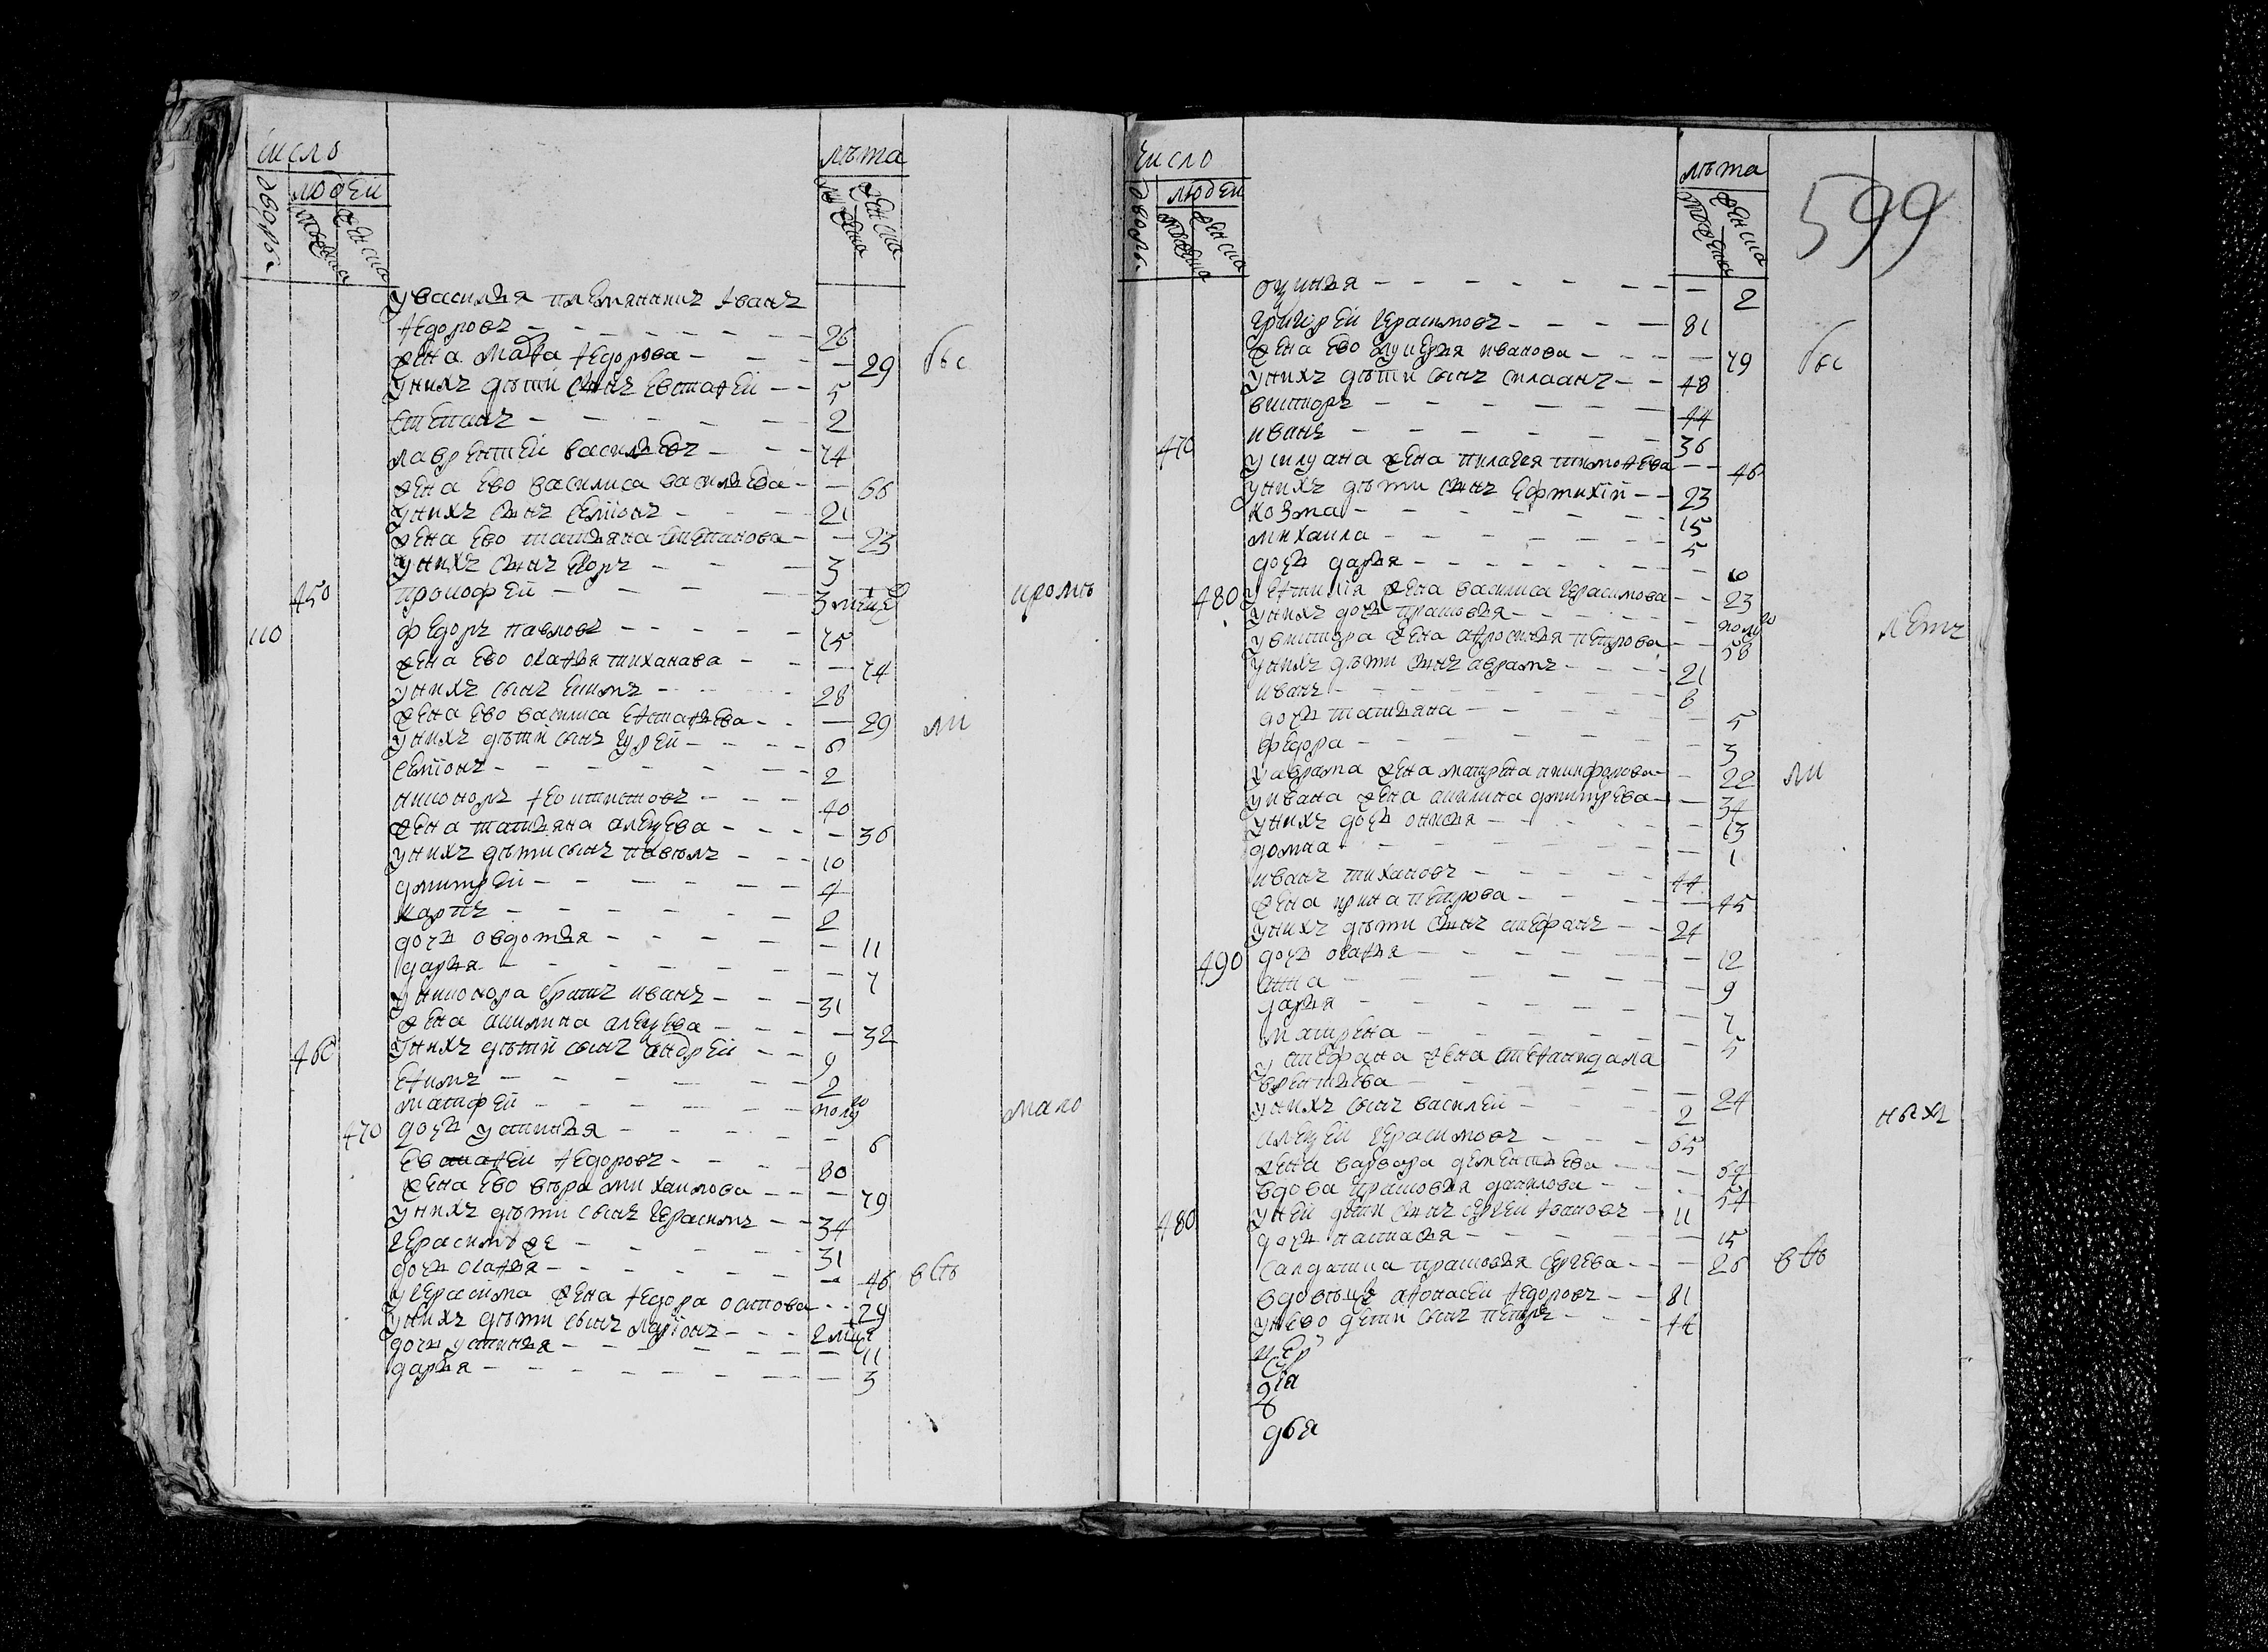 число
лѣта
дворовъ
людей
мужеска
женска
мужеска
женска
у василья племянникъ іванъ
ѳедоровъ — 26
жена марѳа ѳедорова — 29 бы
у нихъ дѣти сынъ евстаѳей — 5
степанъ — 2
лаврентей васильевъ — 74
жена ево василиса васильева — 66
у нихъ сынъ семіонъ — 21
жена ево татьяна степанова — 23
у нихъ сынъ егоръ — 3
450 прокофей — 3 мцъ кромѣ
110 федоръ павловъ — 75
жена ево агаѳья тиханова — 74
у нихъ сынъ екимъ — 28
жена ево василиса естаѳьева — 29 ли
у нихъ дѣти сынъ гурей — 6
семіонъ — 2
никоноръ ѳеоктистовъ — 40
жена татьяна алексѣева — 36
у нихъ дѣти сынъ павелъ — 10
дмитрей — 4
карпъ — 2
дочь овдотья — 11
дарья — 7
у никонора братъ иванъ — 31
жена акилина алексѣева — 32
460 у нихъ дѣти сынъ андрей — 9
еѳимъ — 2
матфей — полу го мало
470 дочь устинья — 6
евстаѳей ѳедоровъ — 80
жена ево вѣра михаилова — 79
у нихъ дѣти сынъ герасимъ — 34
герасим же — 31
дочь агаѳья — 46 всѣ
у герасима жена ѳедора осипова — 29
у нихъ дѣти сынъ ларіонъ — 2 мцъ
дочь устинья — 11
дарья — 3
число
лѣта
599
дворовъ
людей
мужеска
женска
мужеска
женска
— 2
григорей герасимовъ — 81
жена ево лукерья иванова — 79 бы
у нихъ дѣти сынъ силуанъ — 48
викторъ — 44
470 иванъ — 36
у силуана жена пилагея тимоѳева — 46
у нихъ дѣти сынъ ефтихій — 23
козма — 15
михаила — 5
дочь дарья — 10
480 у еѳтихія жена василиса герасимова — 23
у нихъ дочь прасковья — полу го летъ
у виктора жена аѳросинья петрова — 58
у нихъ дѣти сынъ аврамъ — 21
иванъ — 8
дочь татьяна — 5
федора — 3
у аврама жена матрена никифорова — 22 ли
у ивана жена акилина дмитрева — 34
у нихъ дочь онисья — 13
домна — 1
иванъ тихановъ — 44
жена ирина петрова — 45
у нихъ дѣти сынъ — 24
490 дочь агаѳья — 12
анна — 9
дарья — 7
матрена — 5
жена степанида ла
врентьева — 24
у нихъ сынъ василей — 2 ныхъ
алексѣй герасимовъ — 65
жена варвара дементьева — 64
вдова прасковья данилова — 54
480 у ней дѣти сынъ сергей івановъ — 11
дочь настасья — 15
салдатка прасковья сергева — 26 всѣ
вдовецъ аѳонасей ѳедоровъ — 81
у нево дети сынъ петръ — 44